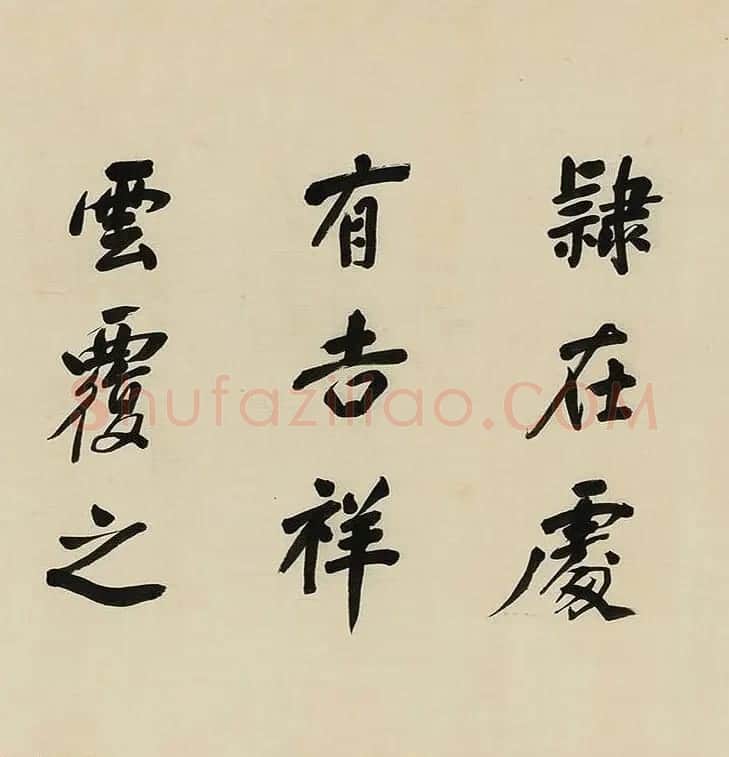 隸在處
有吉祥
雲覆之
shufaziliao.COM